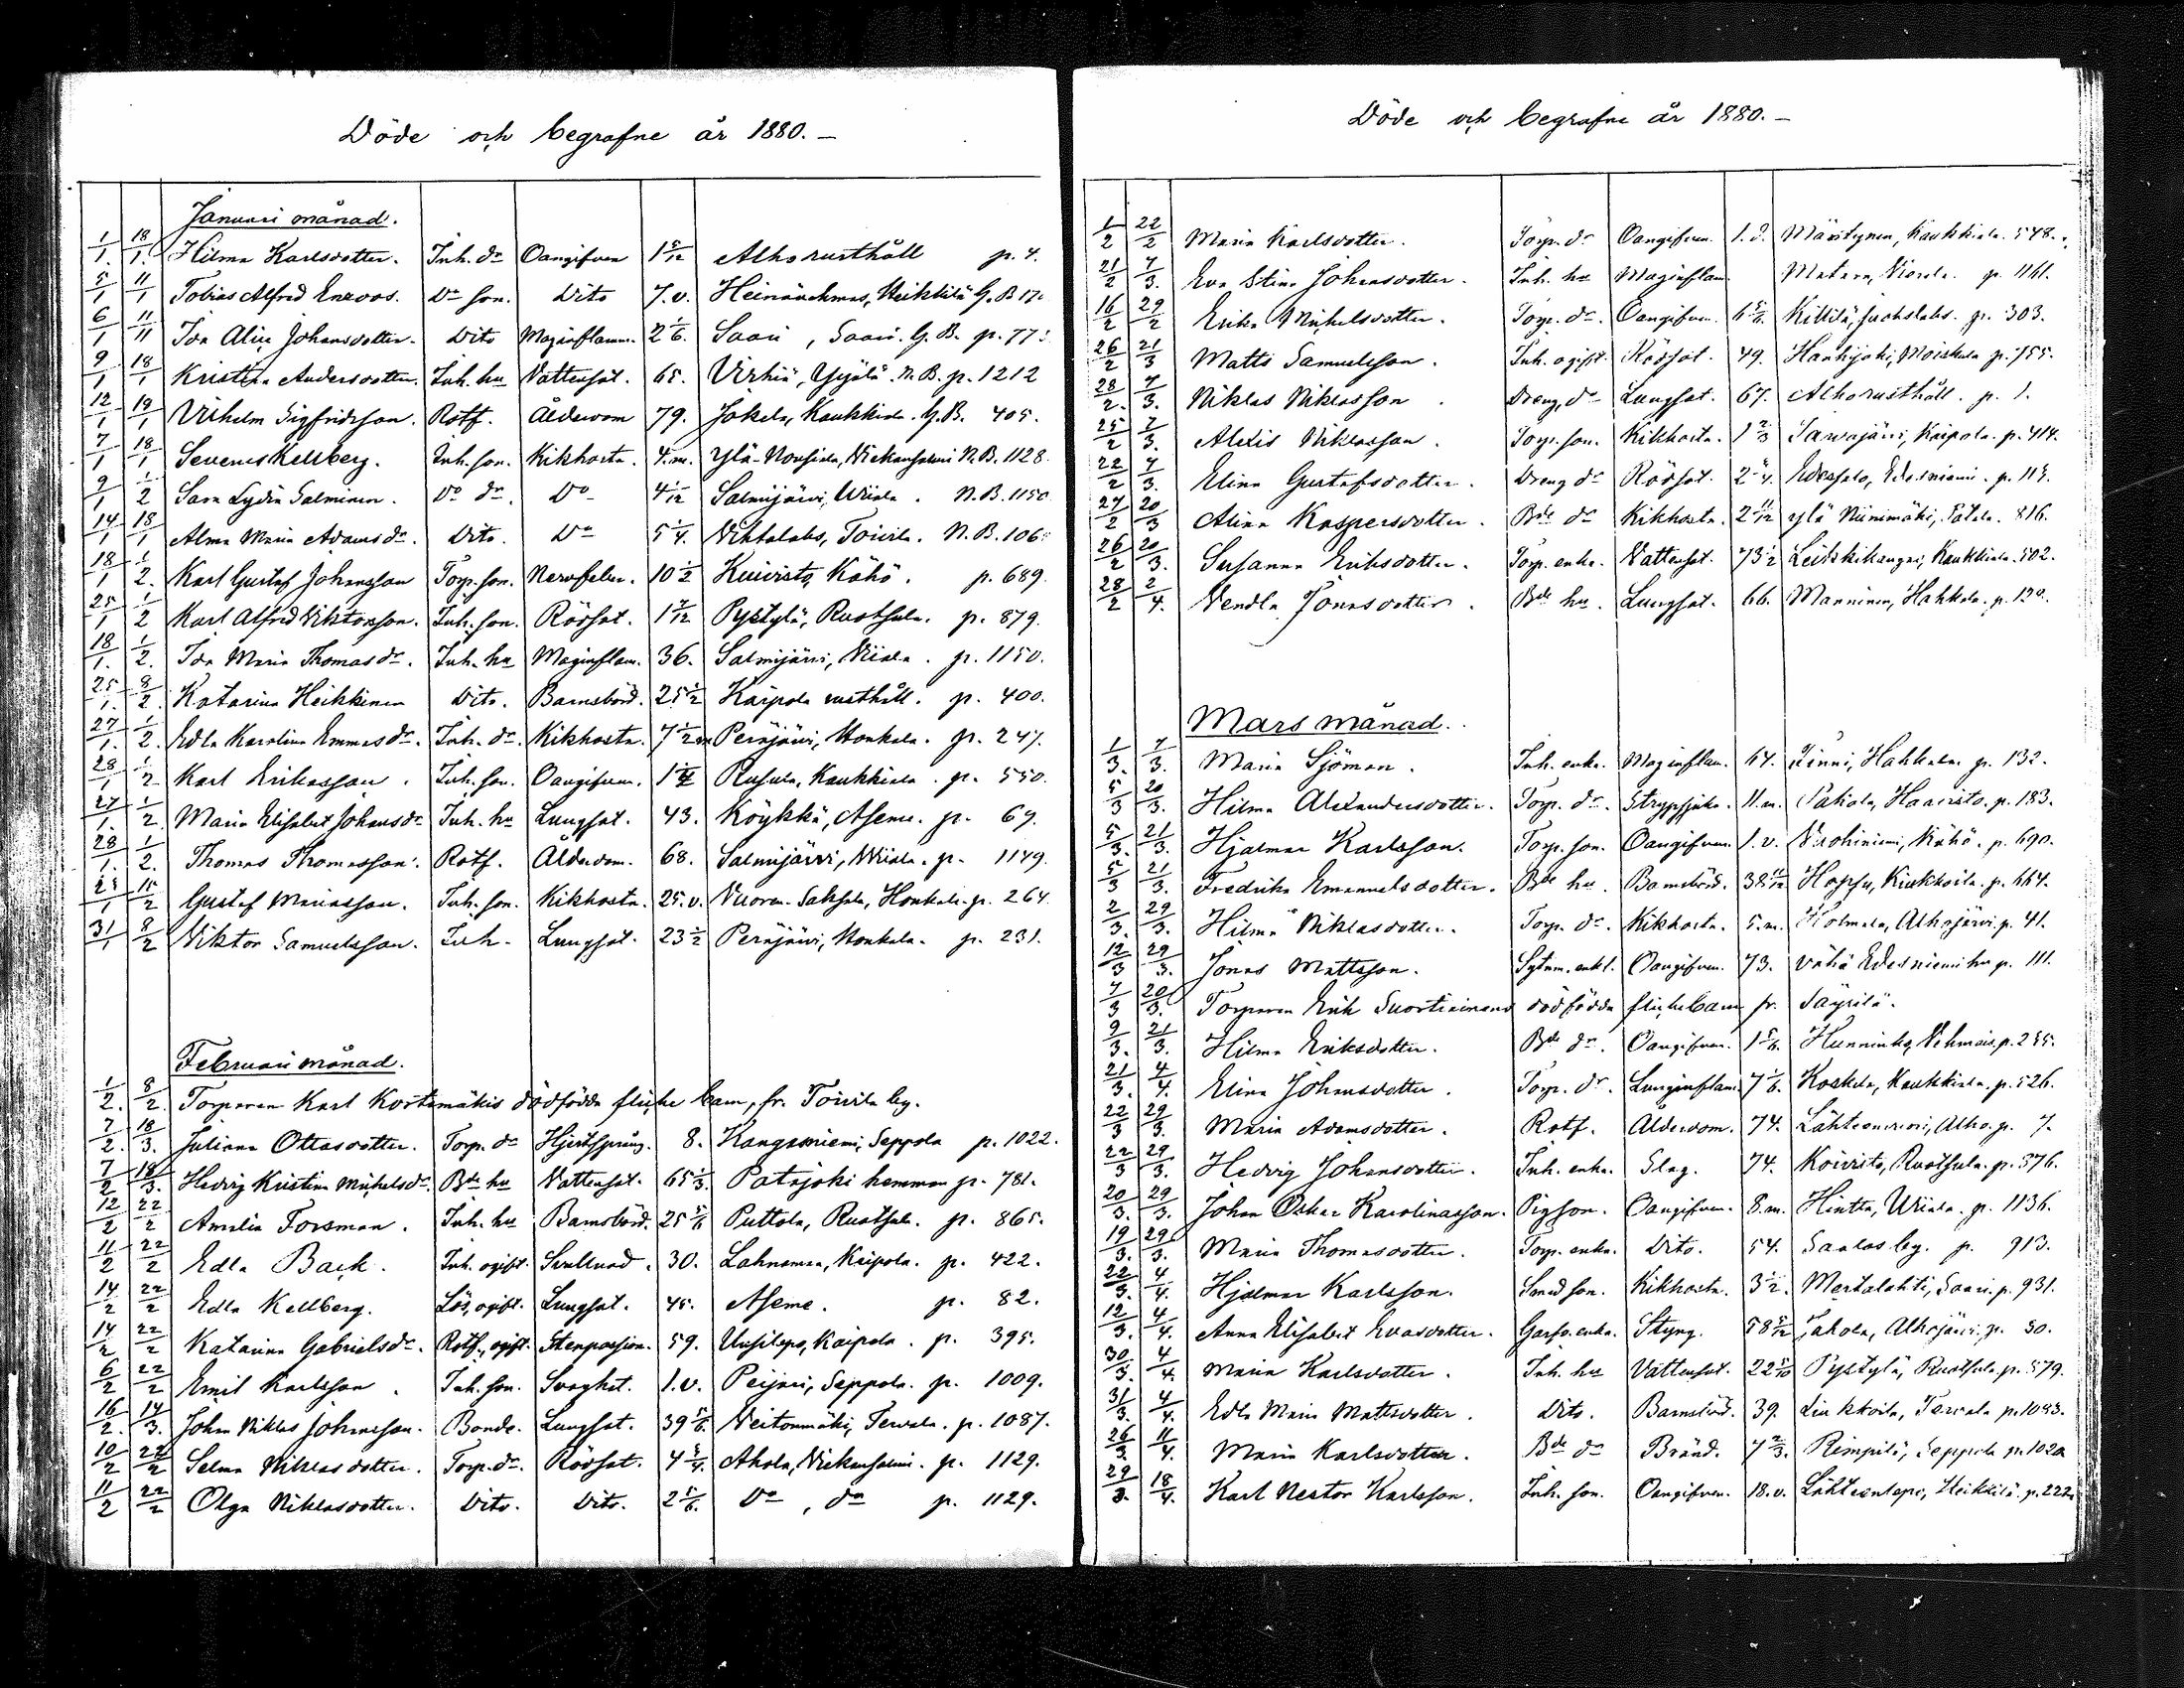 Döde och begrafne år 1880.-
Januari månad.
1/1. 18/1. Hilma Karlsdotter. Inh. dr Oangifven 1 5/12 Alho rusthåll p. 4.
5/1 11/1 Tobias Alfred Enroos. Do son. Dito 7.v. Heinäuchmas, Heikkilä G.B.
6/1 11/11 Ida Alice Johansdotter. Dito Maginflamm. 2 1/6. Saari, Saari. G.B. p. 77
9/1 18/1 Kristina Andersdotter. Inh. hu Vattensot. 65. Virhiä, Yijälä. N.B. p. 1212
12/1 19/1 Vilhelm Sigfridsson. Rotf. Ålderdom 79. Jokela, Kaukkiala. G.B. 405.
7/1 18/1 Severus Kellberg. Inh. son. Kikhosta. 4.m. Ylä-Nousiala, Wiekansalmi N.B. 1128.
9/1 1/2 Sara Lydia Salminen. Do dr. Do 4 1/12 Salmijärvi, Wiiala. N.B. 1150
14/1 18/1 Alma Maria Adamsdr. Dito. Do 5 1/4. Wihtalaks, Toivila. N.B. 106
18/1 1/2. Karl Gustaf Johansson Torp. son. Nervfeber. 10 1/2 Kuivisto, Kähö. p. 689.
25/1 1/2 Karl Alfred Viktorsson. Inh. son. Rödsot. 1 7/12 Pystylä, Ruotsula. p. 879.
18/1. 1/2. Ida Maria Thomasdr. Inh. hu Maginflam. 36. Salmijärvi, Wiiala. p. 1150.
25/1. 8/2. Katarina Heikkinen Dito. Barnsbörd. 25 1/2 Kaipola rusthåll. p. 400.
27/1. 1/2. Edla Karolina Emmasdr. Inh. dr. Kikhosta. 7 1/2 m Peräjärvi, Honkala. p. 247.
28/1 1/2 Karl Eriksson. Inh. son. Oangifven. 1 1/4 Rusula, Kaukkiala. p. 550.
27/1. 1/2 Maria Elisabet Johansdr Inh. hu Lungsot. 43. Köykkä, Aseme. p. 69.
28/1. 1/2. Thomas Thomasson. Rotf. Ålderdom. 68. Salmijärvi, Wiiala. p. 1149.
25/1 15/2 Gustaf Mariasson. Inh. son. Kikhosta. 25.v. Vuoren-Saksala, Honkala. p. 264.
31/1 8/2 Viktor Samuelsson. Inh. Lungsot. 23 1/2 Peräjärvi, Honkala. p. 231.
Februari månad.
1/2. 8/2. Torparen Karl Kortemäkis dödfödda flicke barn, fr. Toivila by.
7/2. 18/3. Juliana Ottasdotter. Torp. dr Hjertsprång. 8. Kangasniemi, Seppola p. 1022.
7/2 18/3. Hedvig Kristina Mickelsdr. Bde hu Vattensot. 65 1/3. Patajoki hemman p. 781.
12/2 22/2 Amalia Forsman. Inh. hu Barnsbörd. 25 5/6 Puttola, Ruotsula. p. 865.
11/2 22/2 Edla Back. Inh. ogift. Svullnad. 30. Lahnomaa, Kaipola. p. 422.
14/2 22/2 Edla Kellberg. Lös, ogift. Lungsot. 45. Aseme. p. 82.
14/2 22/2 Katarina Gabrielsdr. Rotf., ogift. Stenpassion. 59. Uusitupa, Kaipola. p. 395.
6/2 22/2 Emil Karlsson. Inh. son. Svaghet. 1.v. Peijari, Seppola. p. 1009.
16/2. 14/3. Johan Niklas Johansson. Bonde. Lungsot. 39 5/6. Neitonmäki, Tervala. p. 1087.
10/2 22/2 Selma Niklasdotter. Torp. dr. Rödsot. 4 3/4. Ahola, Wiekansalmi. p. 1129.
11/2 22/2 Olga Niklasdotter. Dito. Dito. 2 5/6. Do, do p. 1129.
Döde och begrafne år 1880.-
1/2 22/2 Maria Karlsdotter. Torp. dr Oangifven. 1.d. Mäntynen, Kaukkiala. 548.
21/2 7/3. Eva Stina Johansdotter. Inh. hu Maginflam Matara, Niorala. p. 1161.
16/2 29/2 Erika Mickelsdotter. Torp. dr. Oangifven. Killilä, Juokslaks. p. 303.
26/2 21/3 Matts Samuelsson. Inh. ogift. Rödsot. 49. Haukijoki, Moiskala p. 755.
28/2. 7/3. Niklas Niklasson. Dreng, do Lungsot. 67. Alho rusthåll. p. 1.
25/2 7/3. Aledis Niklasson. Torp. son. Kikhosta. 1 2/3 Sarvajärvi, Kaipola. p. 414.
22/2 7/3. Elina Gustafsdotter. Dreng dr Rödsot. 2 3/4. Edessalo, Edesniemi. p. 115.
27/2 20/3 Alina Kaspersdotter. Bde dr Kikhosta. 2 11/12 Ylä Niinimäki, Pätäla. 816.
26/2 20/3. Susanna Eriksdotter. Torp. enka. Vattensot. 73 1/2 Leiskikangas, Kaukkiala. 502.
28/2 2/4. Vendla Jonasdotter. Bde hu. Lungsot. 66. Manninen, Hahkala. p. 130.
Mars månad.
1/3. 7/3. Maria Sjöman. Inh. enka. Maginflam. 64. Linni, Hahkala p. 132.
5/3 20/3. Hilma Alexandersdotter. Torp. dr. Strypsjuka. 11.m. Pahola, Haavisto. p. 183.
5/3. 21/3. Hjalmar Karlsson. Torp. son. Oangifven. 1.v. Wuohiniemi, Kähö. p. 690.
5/3 21/3. Fredrika Emanuelsdotter. Bde hu. Barnsbörd. 38 11/12 Hopsu, Kiukkoila. p. 664.
2/3. 29/3. Hilma Niklasdotter. Torp. dr. Kikhosta. 5.m. Holmala, Alhojärvi. p. 41.
12/3 29/3. Jonas Mattsson. Sytnm. enkl. Oangifven. 73. Vähä Edesniemi hu p. 111.
7/3 20/3. Torparen Erik Suortinimens dödfödda flickebarn fr. Säyrilä.
9/3. 21/3. Hilma Eriksdotter. Bde dr. Oangifven. 1 5/6. Hunninko, Vehmais. p. 255.
21/3. 4/4. Elina Johansdotter. Torp. dr. Lunginflam. 7 1/6. Koskela, Kaukkiala. p. 526.
22/3 29/3. Maria Adamsdotter. Rotf. Ålderdom. 74. Lähteenrinni, Alho. p. 7.
22/3 29/3. Hedvig Johansdotter. Inh. enka. Slag. 74. Koivisto, Ruotsula. p. 376.
20/3. 29/3. Johan Oskar Karolinasson. Pigson. Oangifven. 8.m. Hintta, Wiiala. p. 1136.
19/3. 29/3. Maria Thomasdotter. Torp. enka. Dito. 54. Saalas by. p. 913.
22/3. 4/4. Hjalmar Karlsson. Smed son. Kikhosta. 3 1/2. Mertalahti, Saari. p. 931.
12/3. 4/4. Anna Elisabet Evasdotter. Garfv. enka. Styng. 58 5/12 Jahola, Alhojärvi. p. 30.
30/3. 4/4. Maria Karlsdotter. Inh. hu Vattensot. 22 5/10 Pystylä, Ruotsula p. 579.
31/3. 4/4. Edla Maria Mattsdotter. Dito. Barnsbörd. 39. Liukkoila, Tervala p. 1083.
26/3. 11/4. Maria Karlsdotter. Bde dr Bränd. 7 2/3. Rimpilä, Seppola p. 1020
29/3. 18/4. Karl Nestor Karlsson. Inh. son. Oangifven. 18.v. Lähteentapo, Heikkilä. p. 222.